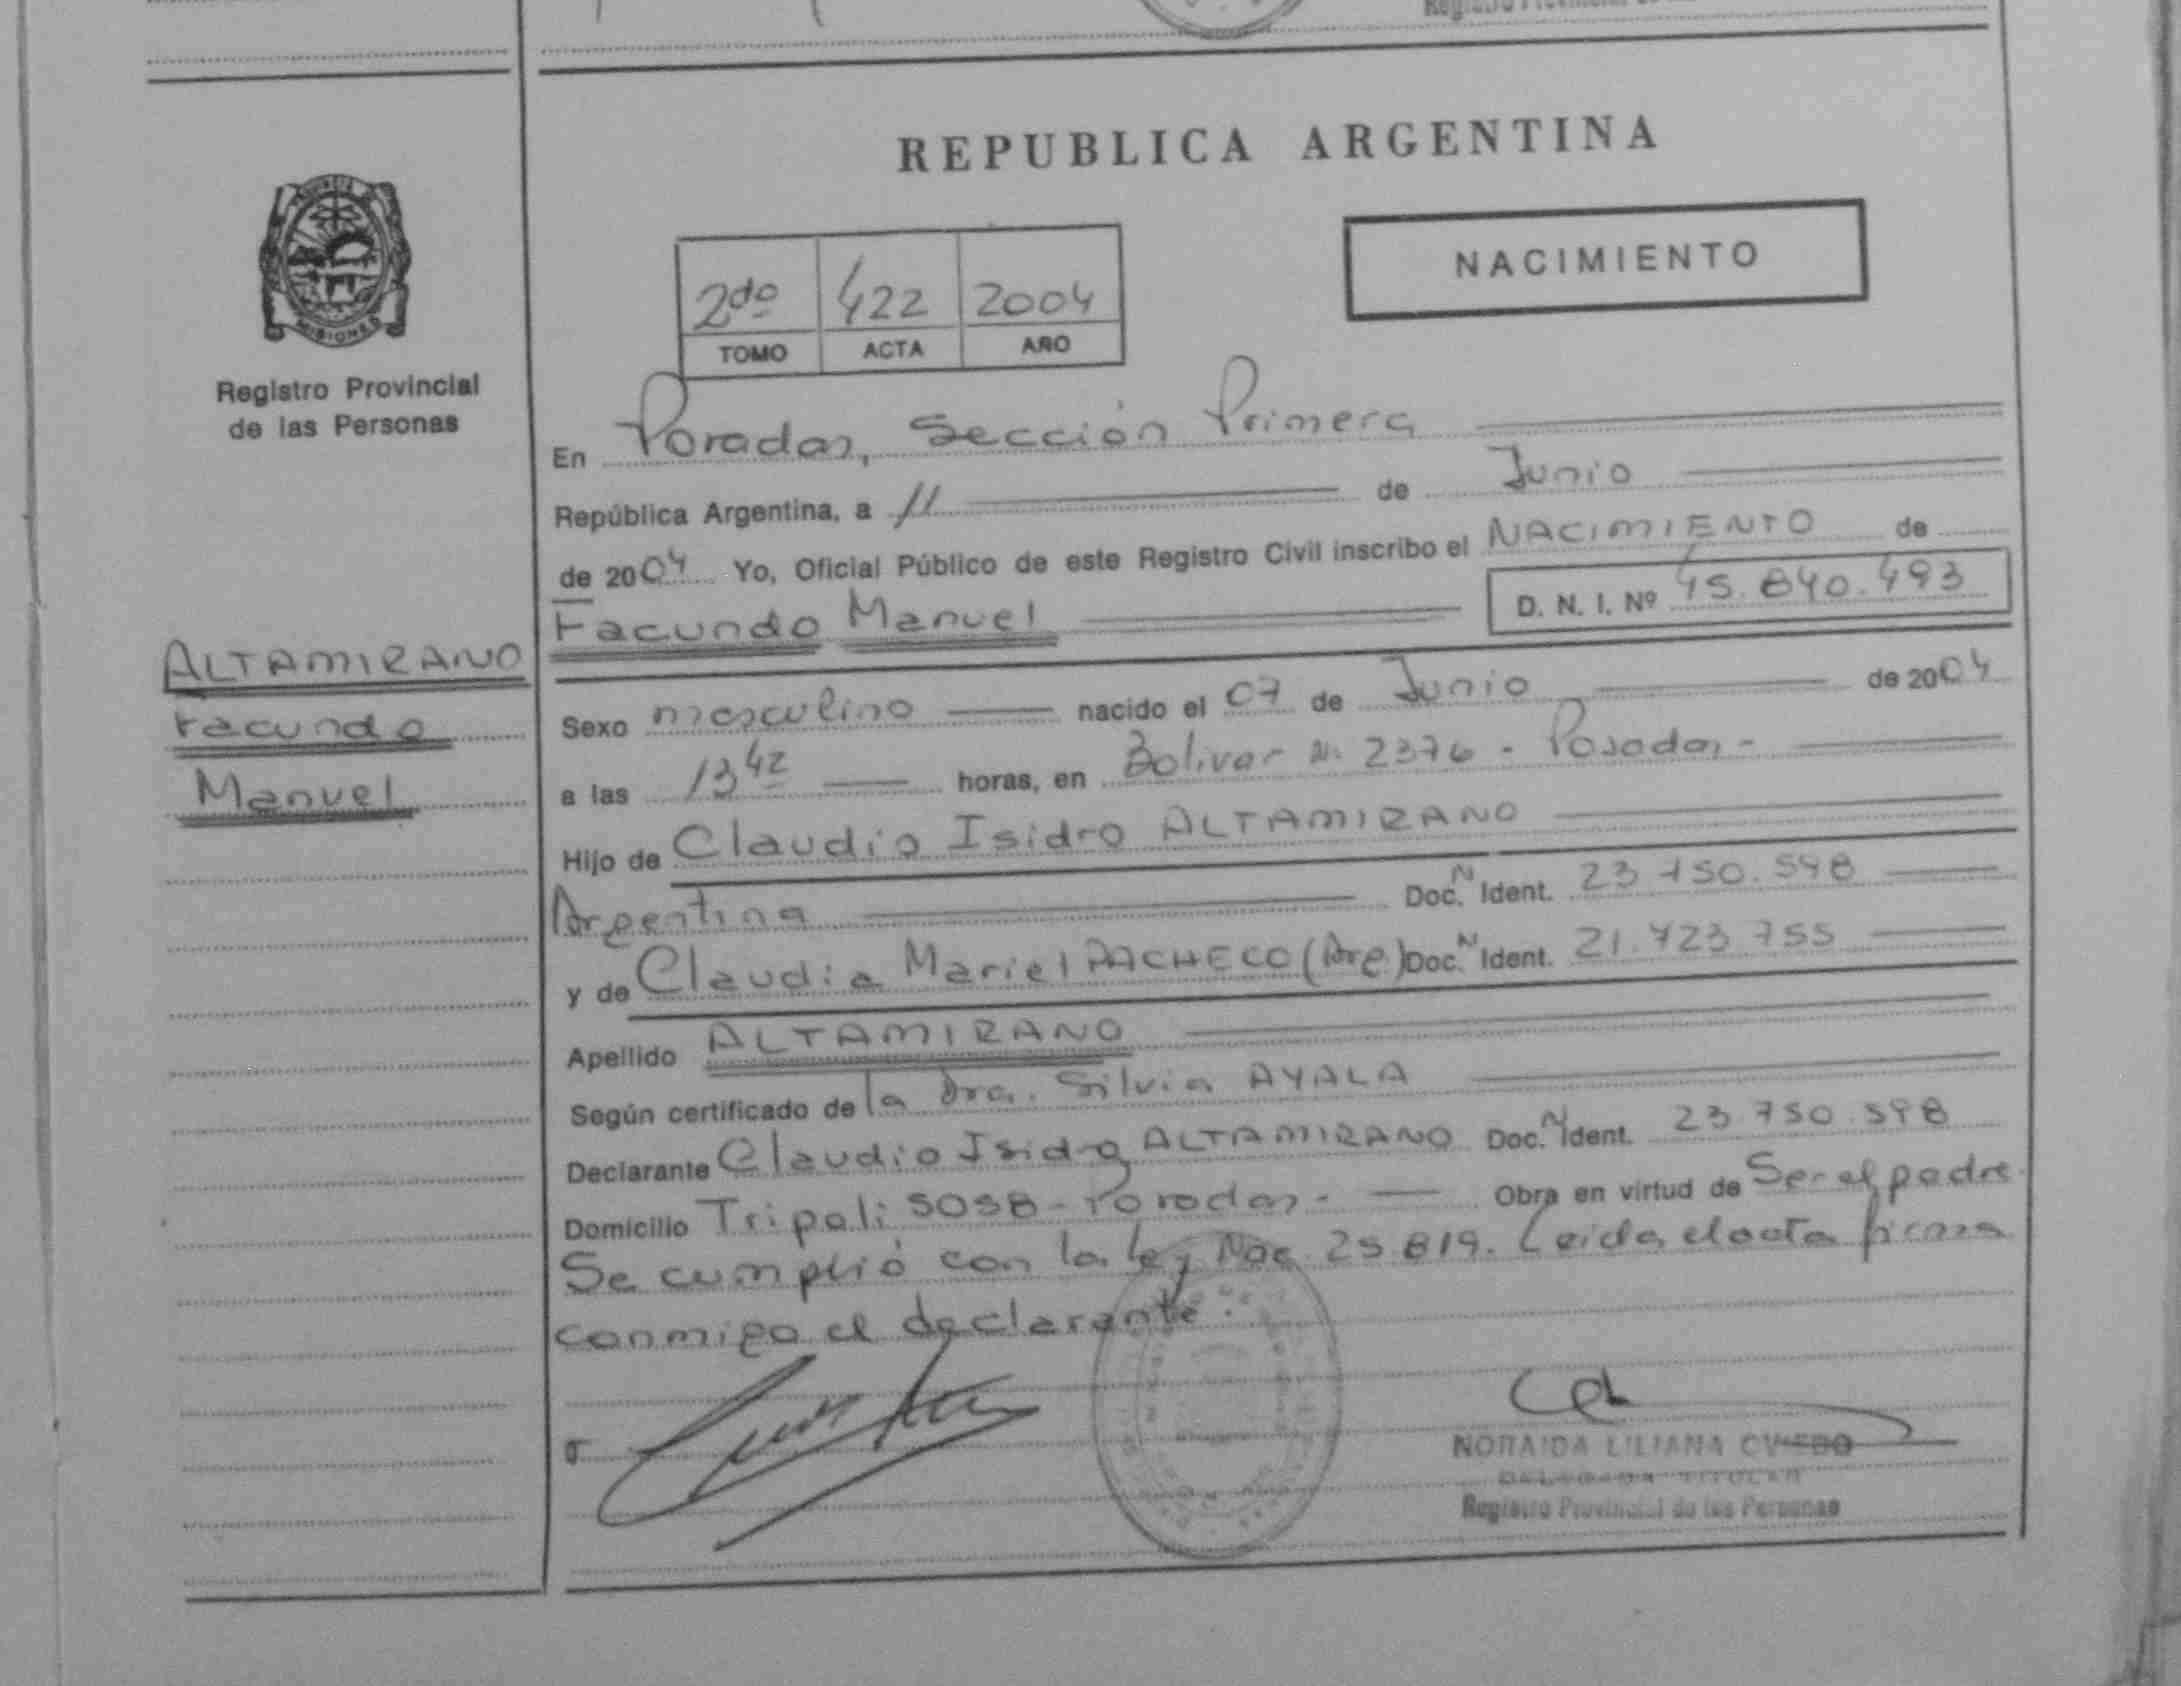 REPUBLICA ARGENTINA
NACIMIENTO
2do 422 2004
TOMO ACTA AÑO
MISIONES
Registro Provincial
de las Personas
En Posadas, Sección Primera
República Argentina, a 11 de Junio
de 2004 Yo, Oficial Público de este Registro Civil inscribo el NACIMIENTO de
Facundo Manuel D. N. I. Nº 45.840.493
ALTAMIRANO
Facundo
Manuel
Sexo masculino nacido el 07 de Junio de 2004
a las 13 42 horas, en Bolivar N. 2376 - Posadas -
Hijo de Claudio Isidro ALTAMIRANO
Argentina Doc. N Ident. 23.750.598
y de Claudia Mariel PACHECO (Arg.) Doc. N Ident. 21.723.755
Apellido ALTAMIRANO
Según certificado de la Dra. Silvia AYALA
Declarante Claudio Isidro ALTAMIRANO Doc. N Ident. 23.750.598
Domicilio Tripoli 5058 - Posadas - Obra en virtud de Ser el padre
Se cumplió con la ley Nac. 25.819. Leida el acta firma
conmigo el declarante.
NORAIDA LILIANA OVIEDO
DELEGADA TITULAR
Registro Provincial de las Personas